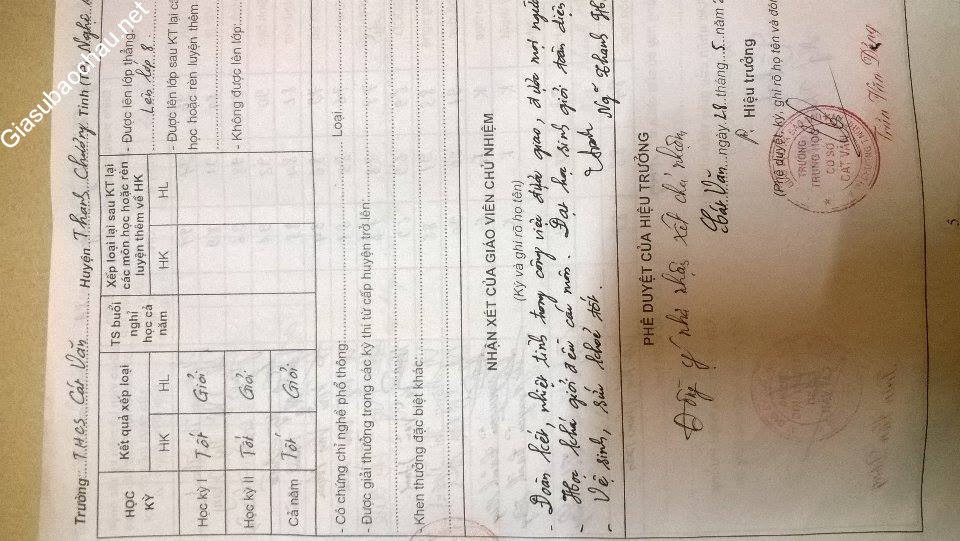 Giasubaochau.net
Trường: T.H.C.S Cát Văn Huyện Thanh Chương Tỉnh (TP) Nghệ
HỌC KỲ
Kết quả xếp loại
TS buổi nghỉ học cả năm
Xếp loại lại sau KT lại các môn học hoặc rèn luyện thêm về HK
- Được lên lớp thẳng:
HK HL HK HL
Lên lớp 8
- Được lên lớp sau KT lại
học hoặc rèn luyện thêm
- Không được lên lớp:
Học kỳ I Tốt Giỏi
Học kỳ II Tốt Giỏi
Cả năm Tốt Giỏi
- Có chứng chỉ nghề phổ thông: Loại
- Được giải thưởng trong các kỳ thi từ cấp huyện trở lên:
- Khen thưởng đặc biệt khác:
NHẬN XÉT CỦA GIÁO VIÊN CHỦ NHIỆM
(Ký và ghi rõ họ tên)
- Đoàn kết, nhiệt tình trong công việc được giao, được mọi người
- Học khá giỏi đều các môn. Đạt học sinh giỏi toàn diện
- Vệ sinh, sức khoẻ tốt.
PHÊ DUYỆT CỦA HIỆU TRƯỞNG
Đồng ý nhận xét chủ nhiệm
Cát Văn, ngày 28 tháng 5 năm
P. Hiệu trưởng
(Phê duyệt, ký, ghi rõ họ tên và
TRƯỜNG
TRUNG HỌC
CƠ SỞ
CÁT VĂN
5